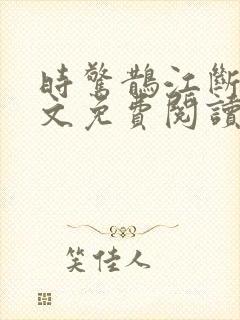 時驚鵲江斷
文免費閱讀
笑佳人